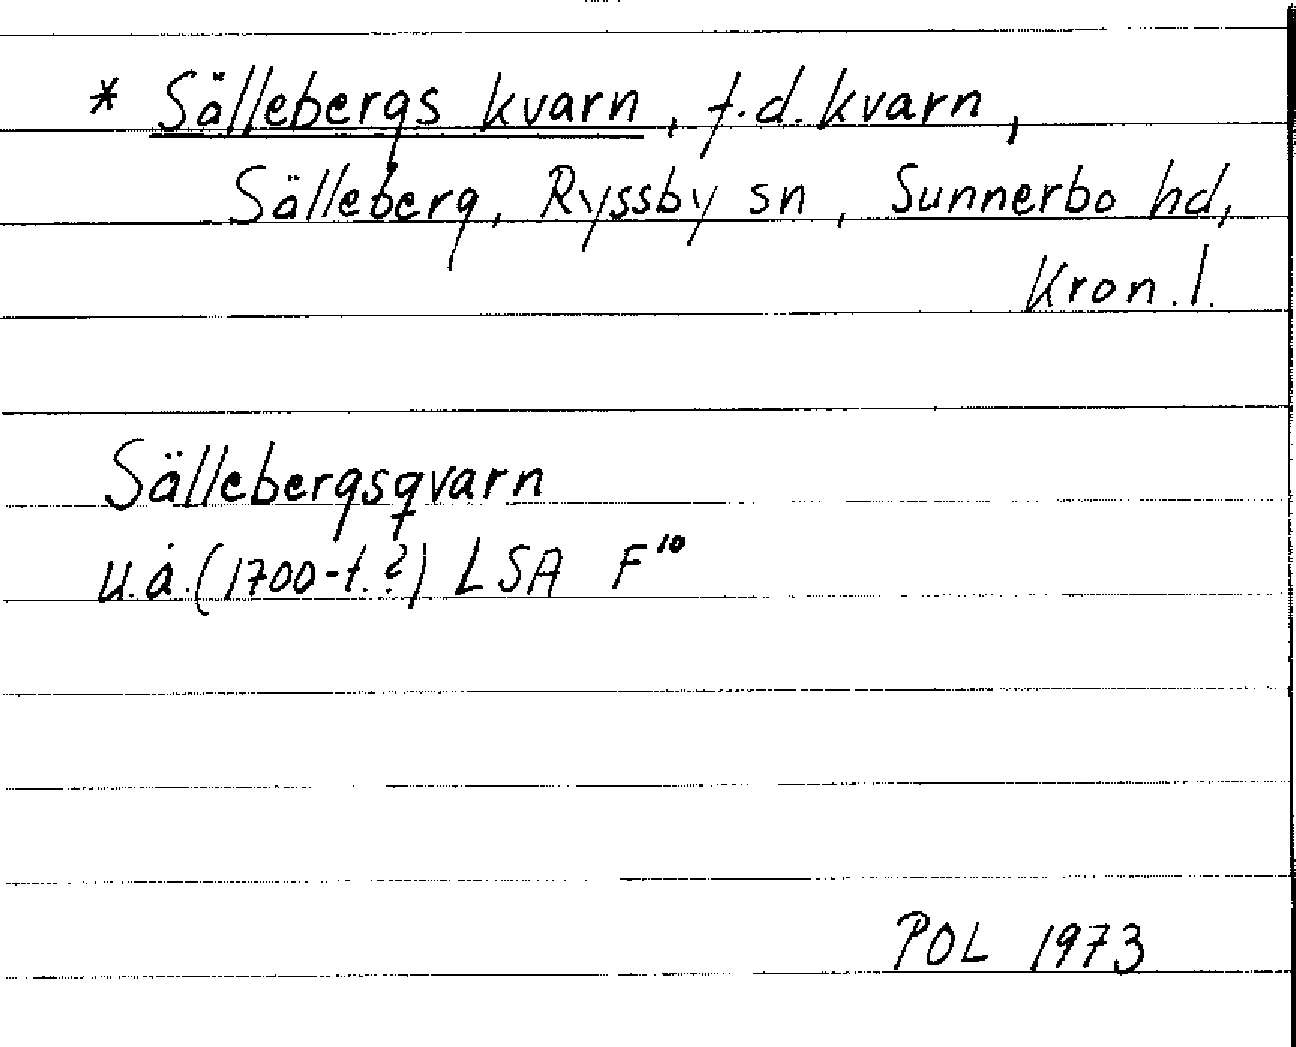 * Sällebergs kvarn, f.d. kvarn,
Sälleberg, Ryssby sn, Sunnerbo hd,
Kron. l.
Sällebergsqvarn
u.å. (1700-t.?) LSA F¹⁰
POL 1973